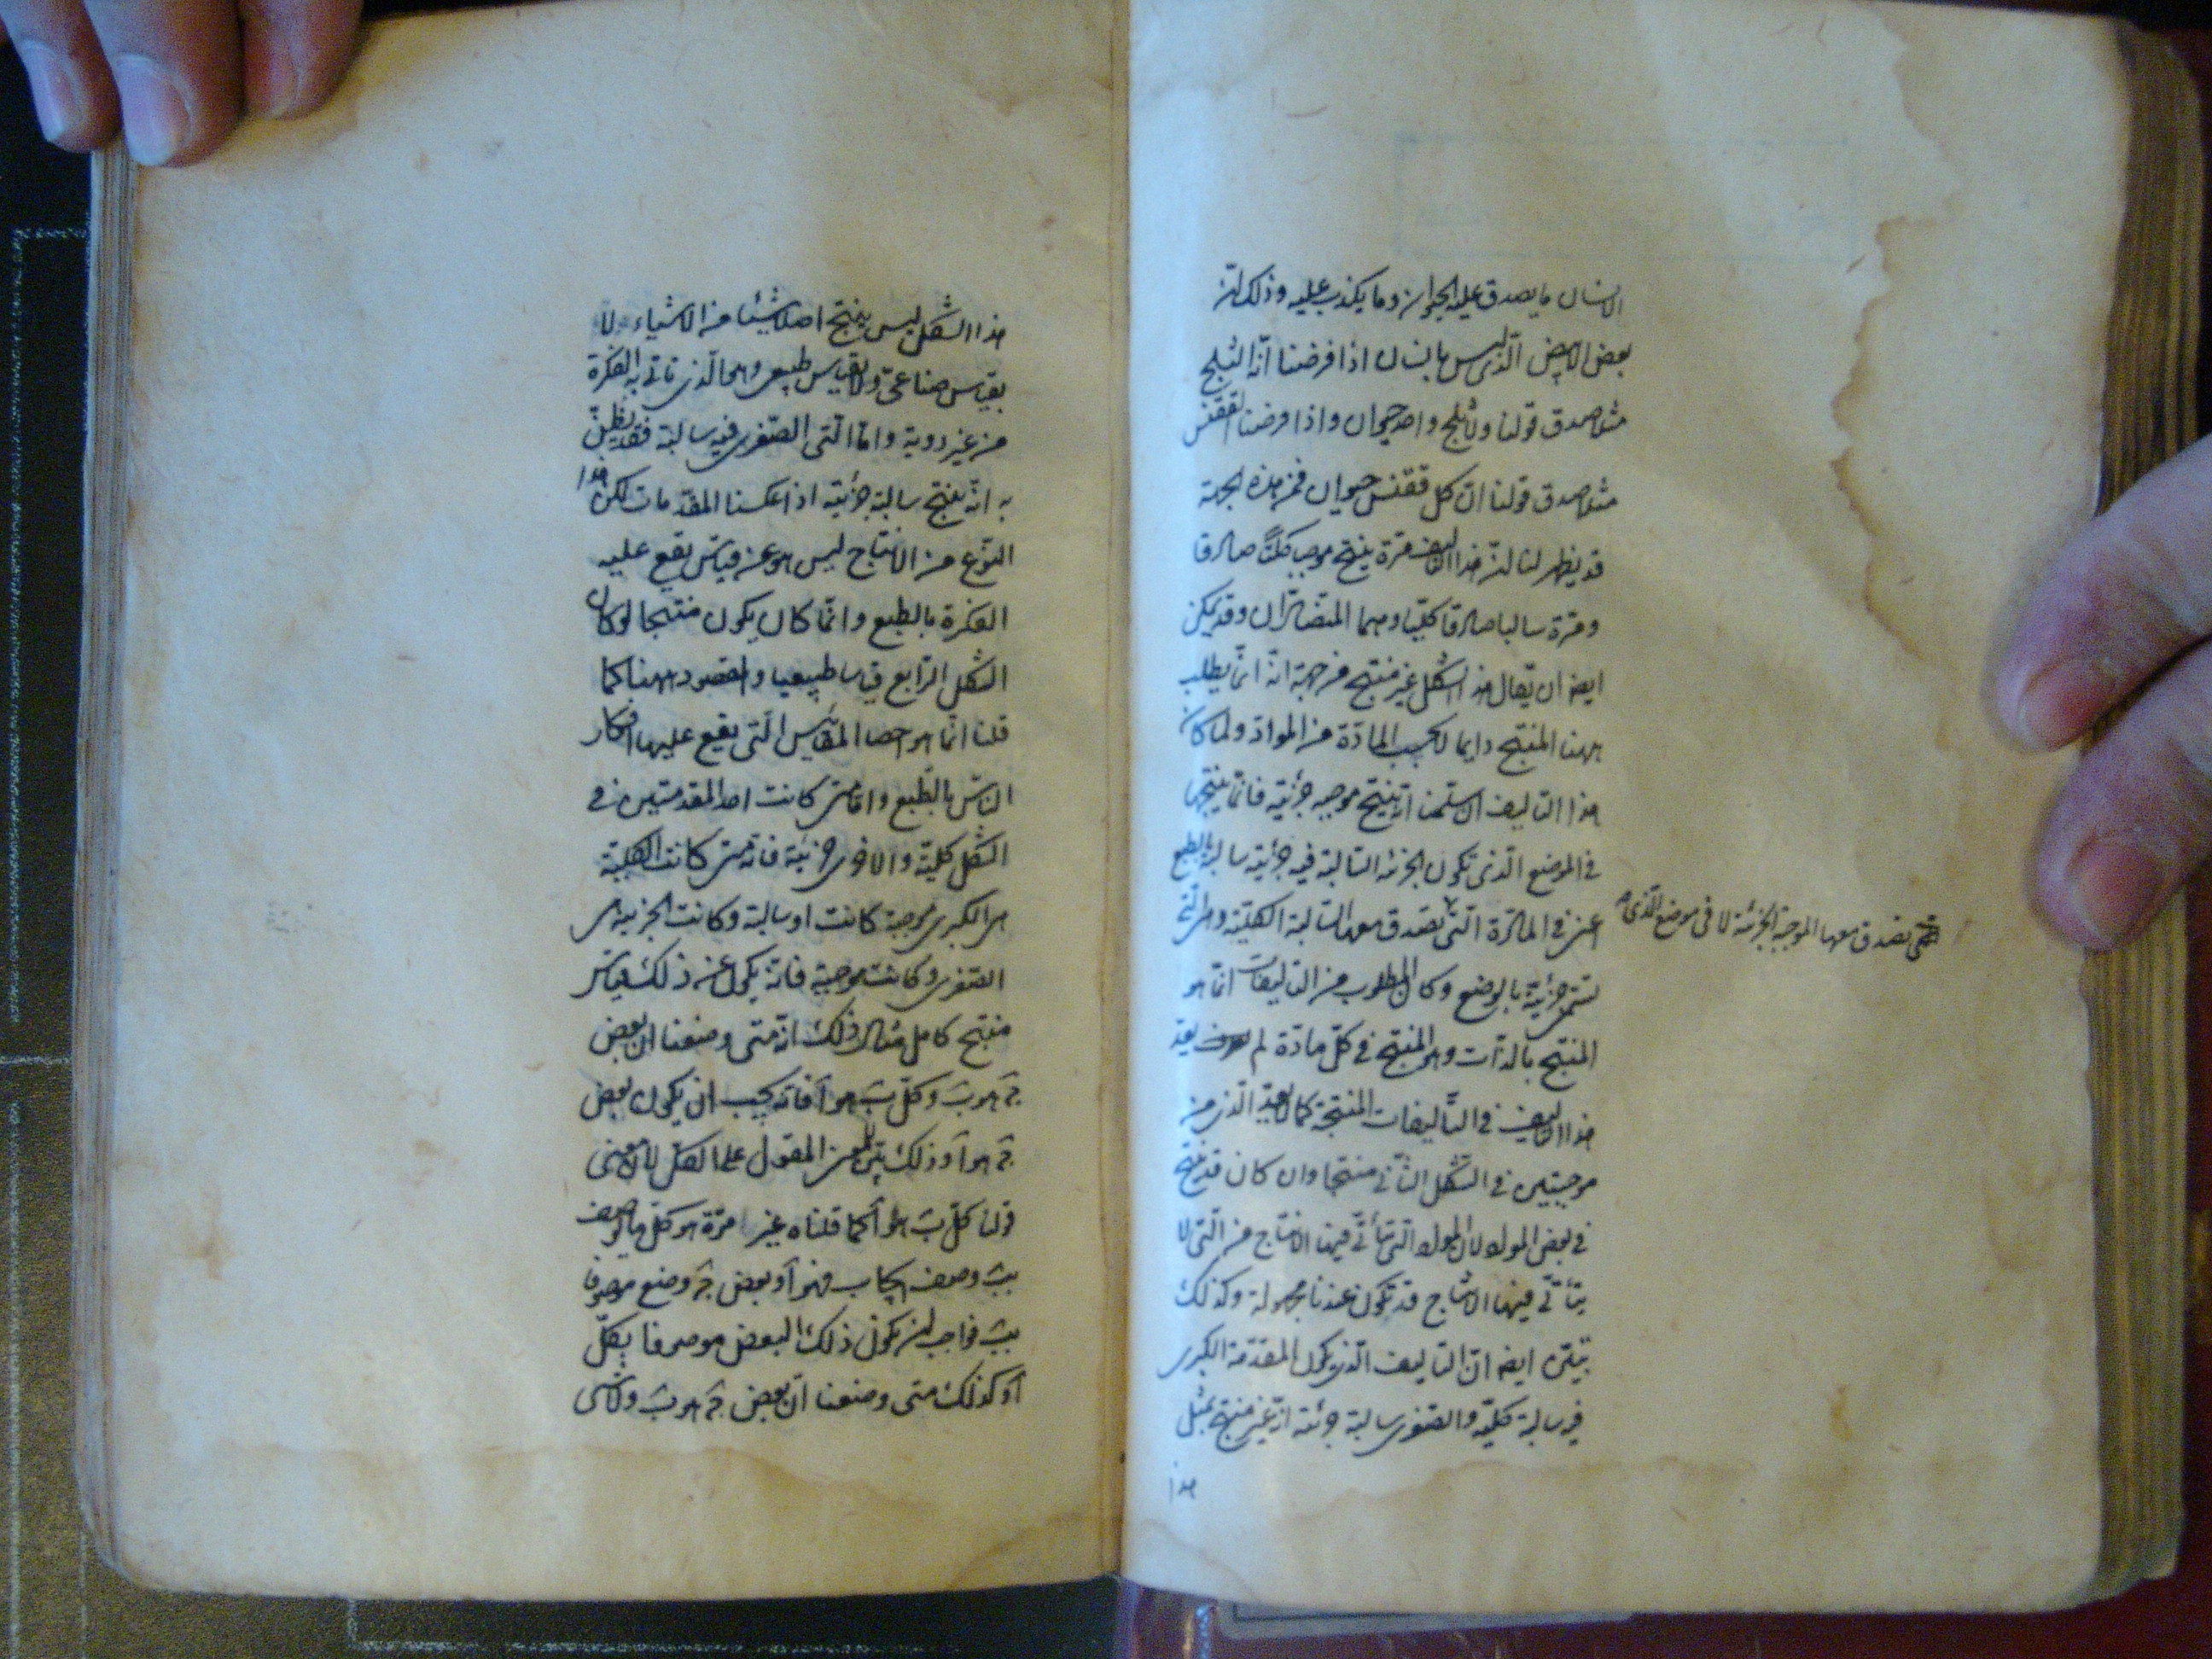 الانسان ما يصدق عليه الحيوان وما يكذب عليه وذلك ان
بعض الابيض الذي ليس بانسان اذا فرضنا انه الثلج
مثلا صدق قولنا ولا ثلج واحد حيوان واذا فرضنا الققنس
مثلا صدق قولنا ان كل ققنس حيوان فمن هذه الجهة
قد يظهر لنا ان هذا التاليف مرة ينتج موجبا كليا صادقا
ومرة سالبا صادقا كليا وهما المتضادان وقد يمكن
ايضا ان يقال هذا الشكل غير منتج من جهة انه انما يطلب
ههنا المنتج دايما لا بحسب المادة من المواد ولما كان
هذا التاليف ان سلمنا انه ينتج موجبه جزئية فانما ينتجها
في الموضع الذي تكون الجزئية السالبة فيه جزئية سالبة بالطبع
اعني في المادة التي تصدق معها السالبة الكلية وهي التي
يصدق معها الموجبة الجزئية لا في موضع الذي
تسمى جزئية بالوضع وكان المطلوب من التاليفات انما هو
المنتج بالذات وهو المنتج في كل مادة لم يعد
هذا التاليف في التاليفات المنتجة كما لم يعد الذي من
موجبتين في الشكل الثاني منتجا وان كان قد ينتج
في بعض المواد لان المواد التي يتأتى فيها الانتاج من التي لا
يتأتى فيها الانتاج قد تكون عندنا مجهولة وكذلك
يتبين ايضا ان التاليف الذي يكون المقدمة الكبرى
فيه سالبة كلية والصغرى سالبة جزئية انه غير منتج بمثل
هذا
هذا الشكل ليس ينتج اصلا شيئا من الاشياء لا
بقياس صناعي ولا بقياس طبيعي وهو الذي تاتي به الفكرة
من غير روية واما التي الصغرى فيه سالبة فقد يظن
به انه ينتج سالبة جزئية اذا عكسنا المقدمات لكن هذا
النوع من الانتاج ليس هو عن قياس يقع عليه
الفكرة بالطبع وانما كان يكون منتجا لو كان
الشكل الرابع قياسا طبيعيا والمقصود ههنا كما
قلنا انما هو احصا المقاييس التي يقع عليها افكار
الناس بالطبع واما متى كانت احد المقدمتين في
الشكل كلية والاخرى جزئية فانه متى كانت الكلية
هي الكبرى موجبة كانت او سالبة وكانت الجزئية هي
الصغرى وكانت موجبة فانه يكون عن ذلك قياس
منتج كامل مثال ذلك انه متى وضعنا ان بعض
ج هو ب وكل ب هو ا فانه يجب ان يكون بعض
ج هو ا وذلك بين من المقول على الكل لان معنى
قولنا كل ب هو ا كما قلناه غير مرة هو كل ما يوصف
بب وصف ايجاب فهو ا وبعض ج وضع موصوفا
بب فواجب ان يكون ذلك البعض موصوفا بكل
ا وكذلك متى وضعنا ان بعض ج هو ب ولا شى